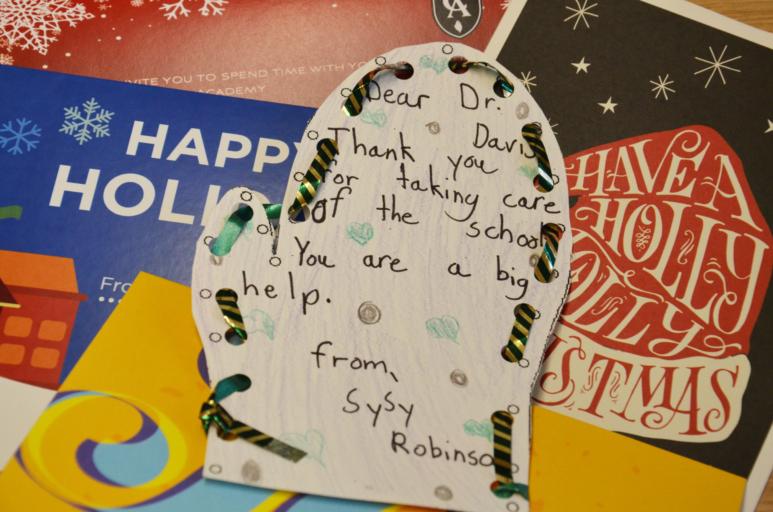 CA
VITE YOU TO SPEND TIME WITH YO
ACADEMY
HAPPY
HOLI
Fro
Dear Dr.
Davis
Thank you
for taking care
of the school
You are a big
help.
from,
Sysy
Robinso
HAVE A
HOLLY
JOLLY
STMAS